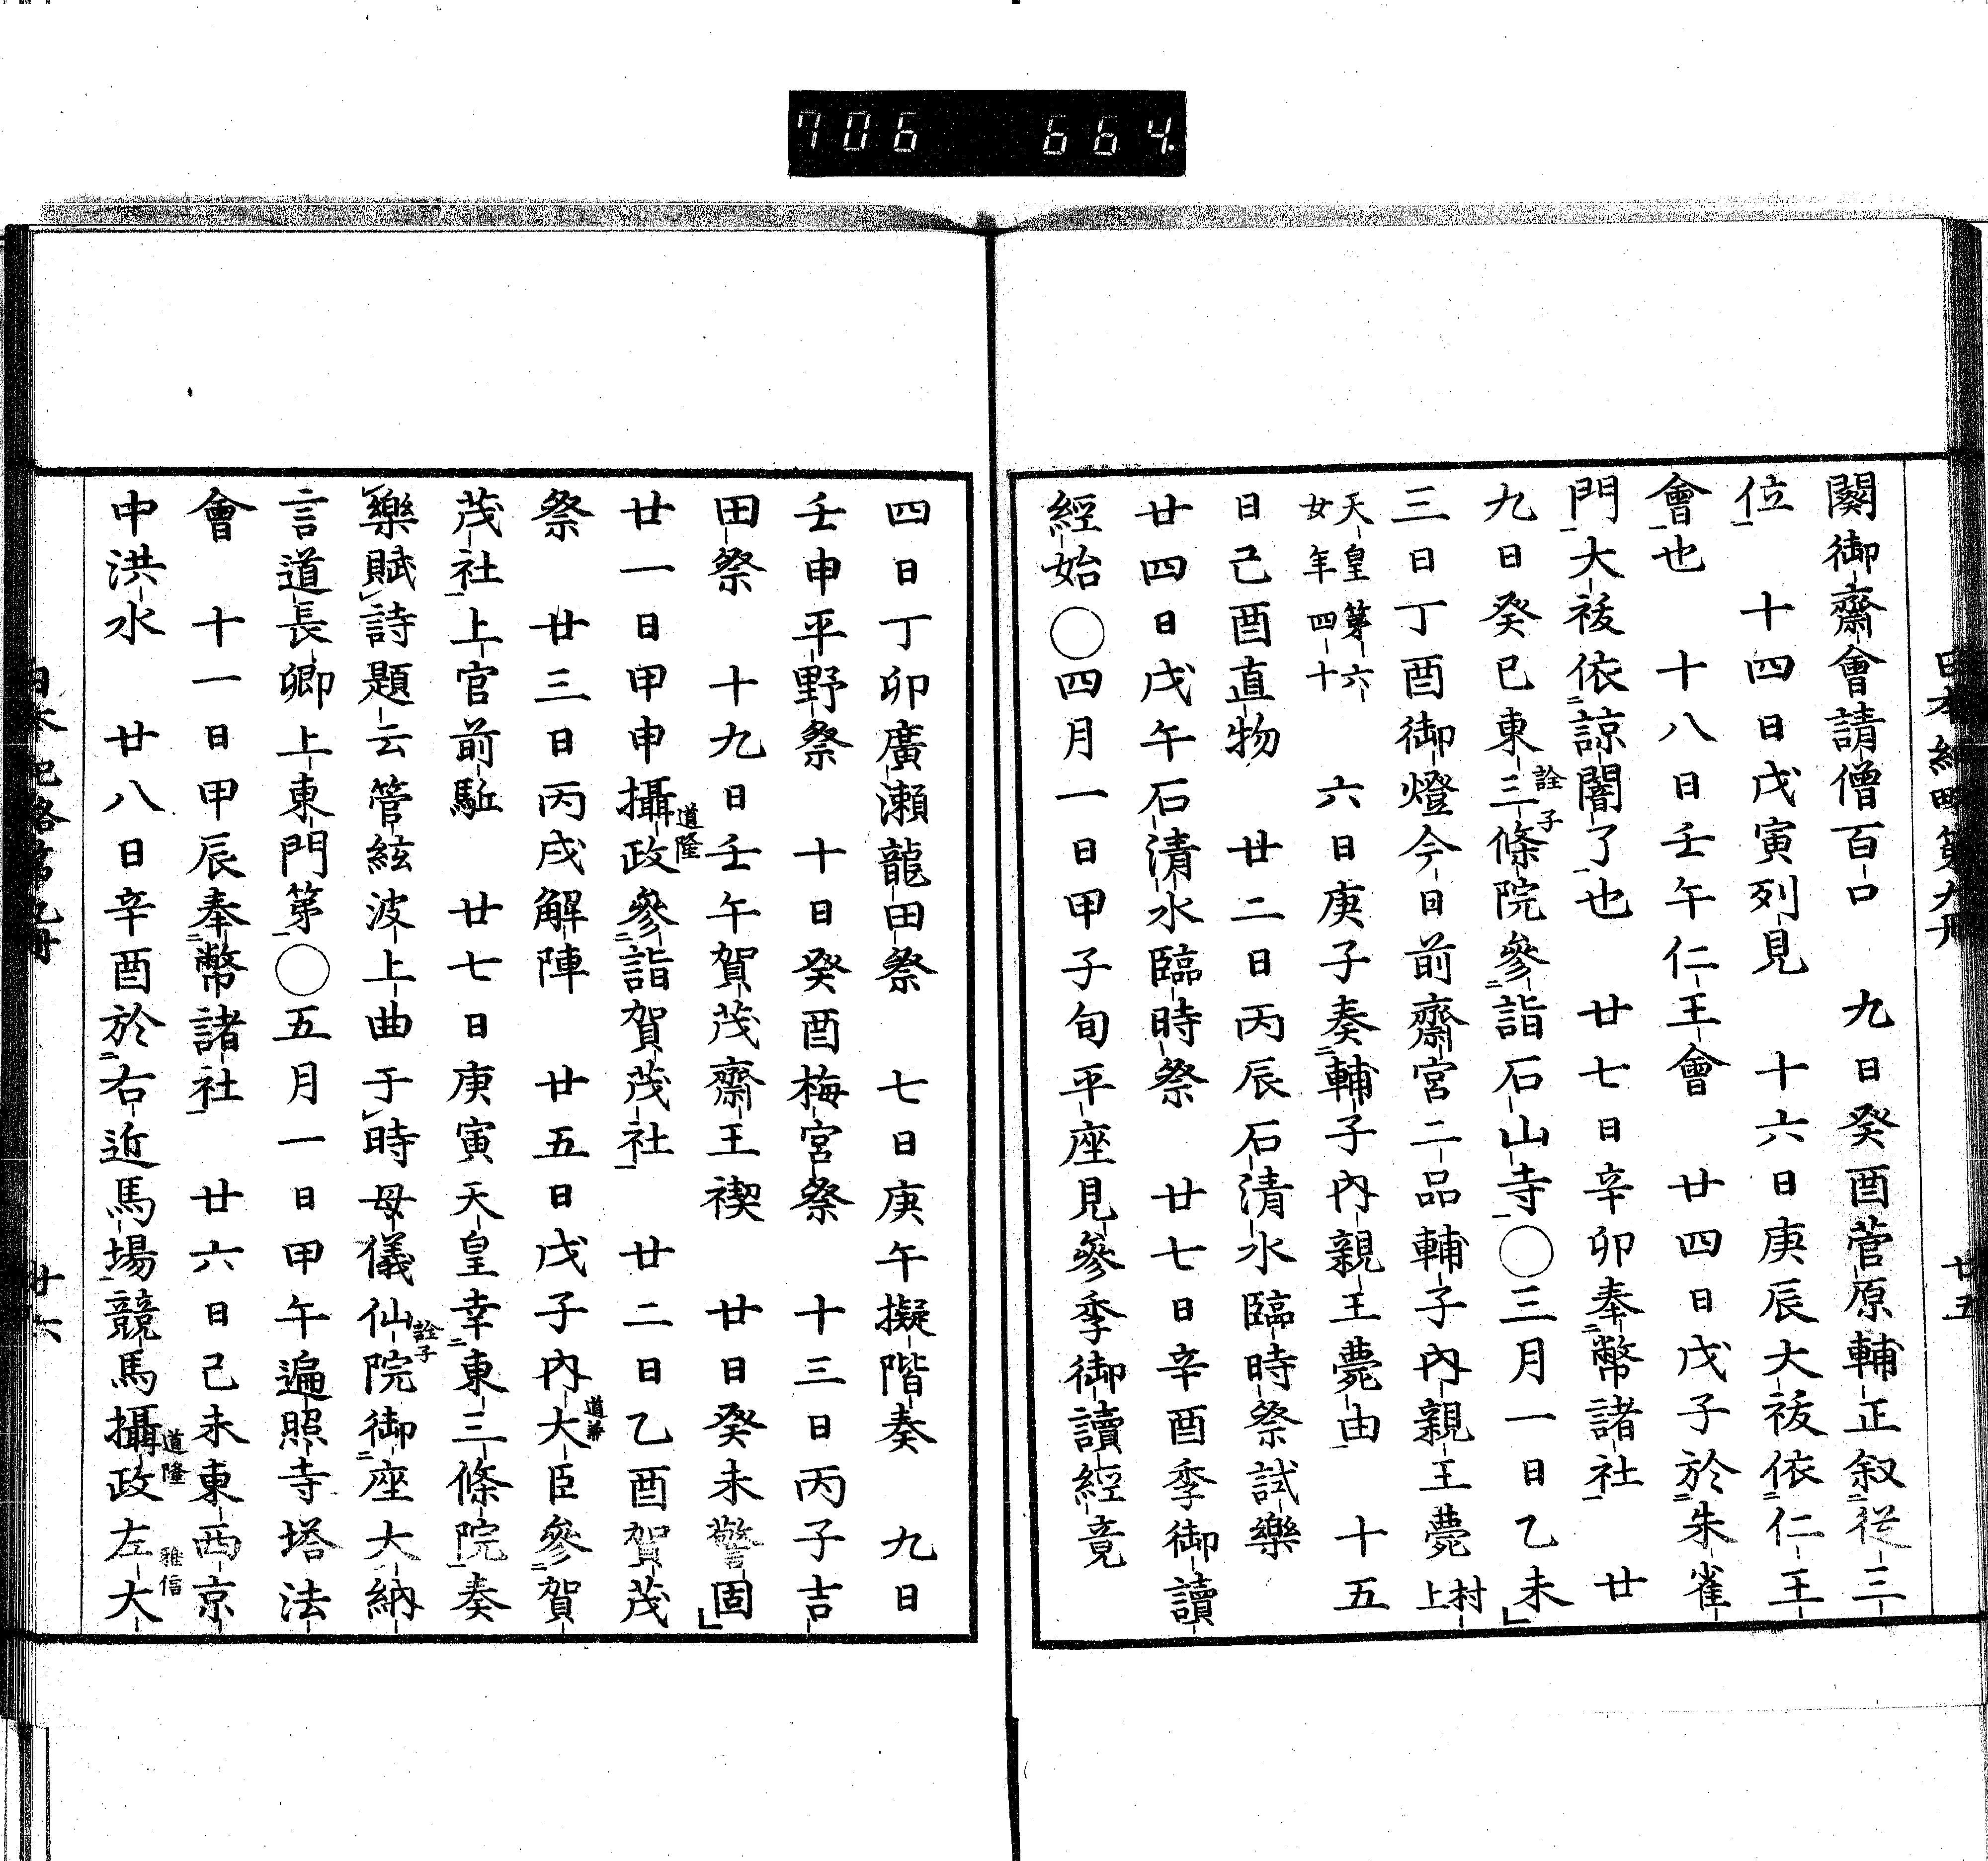 706 664
日本紀略第九冊 廿五
闋御齋會請僧百口 九日癸酉菅原輔正叙從三
位 十四日戊寅列見 十六日庚辰大祓依仁王
會也 十八日壬午仁王會 廿四日戊子於朱雀
門大祓依諒闇了也 廿七日辛卯奉幣諸社 廿
九日癸巳東三條院詮子參詣石山寺○三月一日乙未
三日丁酉御燈今日前齋宮二品輔子内親王薨村上
天皇第六女年四十 六日庚子奏輔子内親王薨由 十五
日己酉直物 廿二日丙辰石清水臨時祭試樂
廿四日戊午石清水臨時祭 廿七日辛酉季御讀
經始○四月一日甲子旬平座見參季御讀經竟
四日丁卯廣瀬龍田祭 七日庚午擬階奏 九日
壬申平野祭 十日癸酉梅宮祭 十三日丙子吉
田祭 十九日壬午賀茂齋王禊 廿日癸未警固
廿一日甲申攝政道隆參詣賀茂社 廿二日乙酉賀茂
祭 廿三日丙戌解陣 廿五日戊子内大臣道兼參賀
茂社上官前駈 廿七日庚寅天皇幸東三條院奏
樂賦詩題云管絃波上曲于時母儀仙院詮子御座大納
言道長卿上東門第○五月一日甲午遍照寺塔法
會 十一日甲辰奉幣諸社 廿六日己未東西京
中洪水 廿八日辛酉於右近馬場競馬攝政道隆左大雅信
日本紀略第九冊 廿六